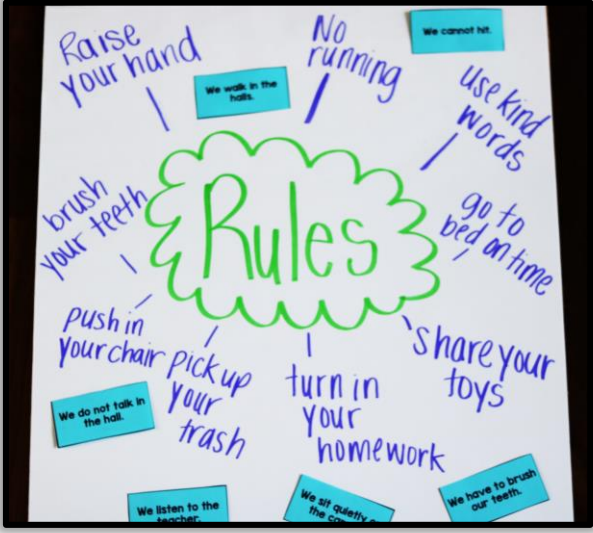 Raise
your hand
No
running
We cannot hit.
We walk in the
halls.
use kind
words
brush
your teeth
Rules
go to
bed on time
push in
your chair
pick up
your
trash
turn in
your
homework
share your
toys
We do not talk in
the hall.
We listen to the
teacher.
We sit quietly
the
We have to brush
our teeth.